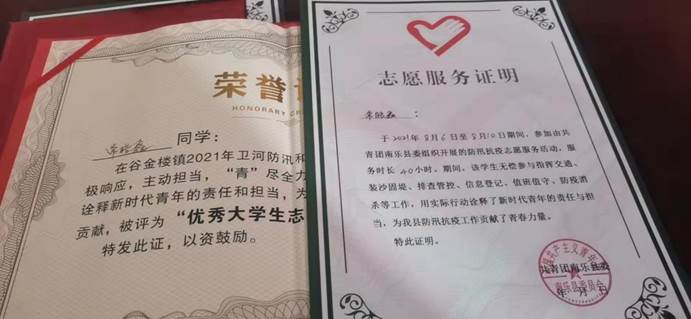 荣誉证
HONORARY CR
同学：
在谷金楼镇2021年卫河防汛和
极响应，主动担当，“青”尽全力
诠释新时代青年的责任和担当，为
贡献，被评为“优秀大学生志
特发此证，以资鼓励。
志愿服务证明
：
于2021年8月6日至8月10日期间，参加由共
青团南乐县委组织开展的防汛抗疫志愿服务活动，服
务时长40小时。期间，该学生无偿参与指挥交通、
装沙固堤、排查管控、信息登记、值班值守、防疫消
杀等工作，用实际行动诠释了新时代青年的责任与担
当，为我县防汛抗疫工作贡献了青春力量。
特此证明。
共青团南乐县委
年 月 日
南乐县委员会